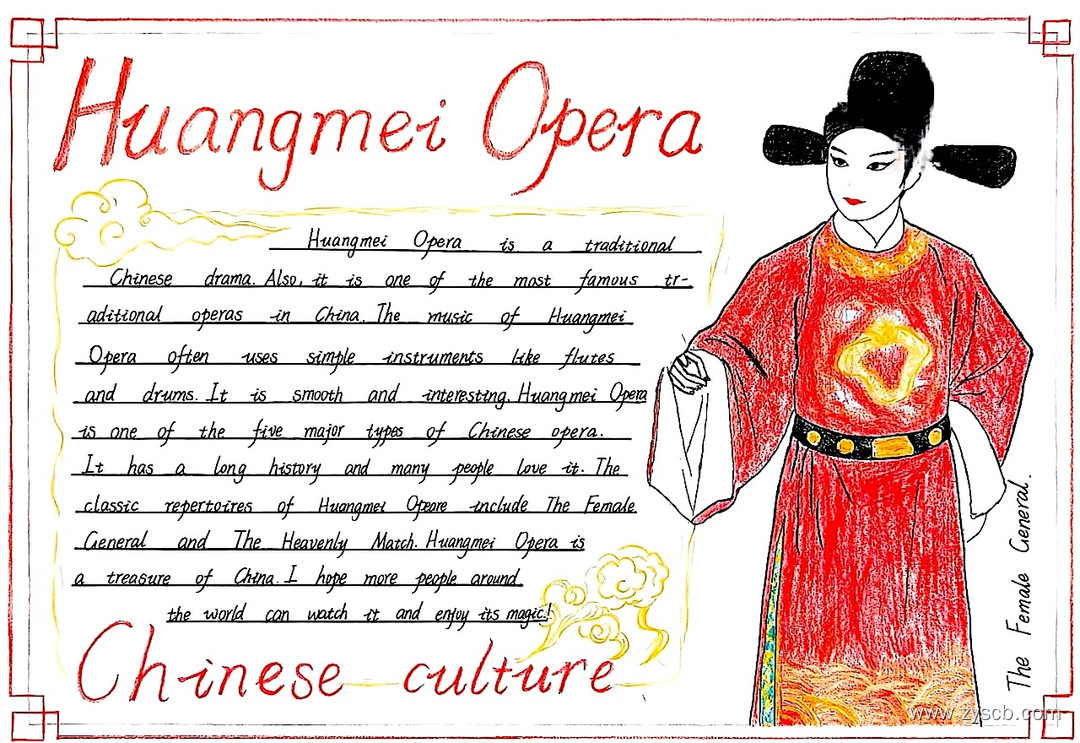 Huangmei Opera
Huangmei Opera is a traditional
Chinese drama. Also, it is one of the most famous tr-
aditional operas in China. The music of Huangmei
Opera often uses simple instruments like flutes
and drums. It is smooth and interesting. Huangmei Opera
is one of the five major types of Chinese opera.
It has a long history and many people love it. The
classic repertoires of Huangmei Opeare include The Female
General and The Heavenly Match. Huangmei Opera is
a treasure of China. I hope more people around
the world can watch it and enjoy its magic!
Chinese culture
The Female General.
www.zyscb.com